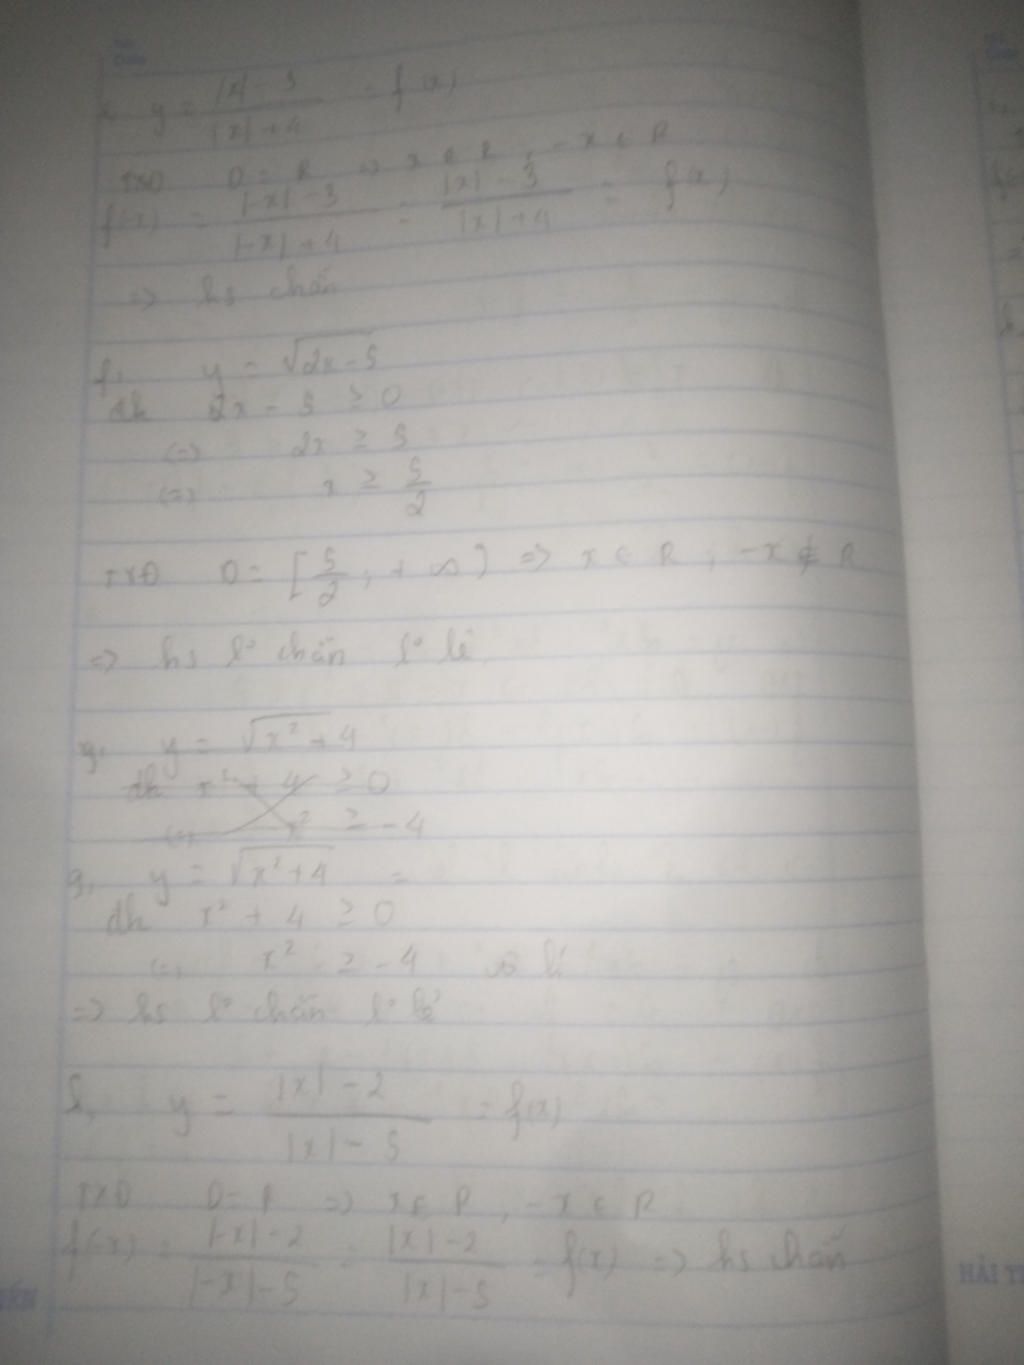 y = |x| - 3 / |x| + 4 = f(x)
TXĐ D = R => x ∈ R, -x ∈ R
f(-x) = |-x| - 3 / |-x| + 4 = |x| - 3 / |x| + 4 = f(x)
=> hs chẵn
f, y = √2x - 5
đk 2x - 5 ≥ 0
(=) 2x ≥ 5
(=) x ≥ 5/2
TXĐ D = [5/2; +∞) => x ∈ R, -x ∉ R
=> hs k° chẵn k° lẻ
g, y = √x² + 4
đk x² + 4 ≥ 0
(=) x² ≥ -4
g, y = √x² + 4 =
đk x² + 4 ≥ 0
(=) x² ≥ -4 vô lí
=> hs k° chẵn k° lẻ
y = |x| - 2 / |x| - 5 = f(x)
TXĐ D = R => x ∈ R, -x ∈ R
f(-x) = |-x| - 2 / |-x| - 5 = |x| - 2 / |x| - 5 = f(x) => hs chẵn
HẢI T